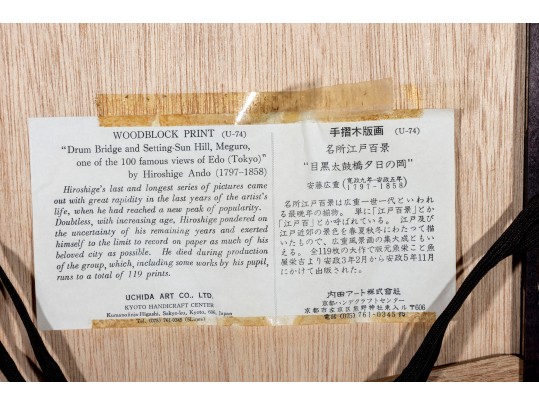 WOODBLOCK PRINT (U-74)
"Drum Bridge and Setting-Sun Hill, Meguro,
one of the 100 famous views of Edo (Tokyo)"
by Hiroshige Ando (1797-1858)
Hiroshige's last and longest series of pictures came
out with great rapidity in the last years of the artist's
life, when he had reached a new peak of popularity.
Doubtless, with increasing age, Hiroshige pondered on
the uncertainty of his remaining years and exerted
himself to the limit to record on paper as much of his
beloved city as possible. He died during production
of the group, which, including some works by his pupil,
runs to a total of 119 prints.
UCHIDA ART CO., LTD.
KYOTO HANDICRAFT CENTER
Kumanojinja Higashi, Sakyo-ku, Kyoto, 606, Japan
Tel. (075) 761-0345
手摺木版画 (U-74)
名所江戸百景
"目黒太鼓橋夕日の岡"
安藤広重 (寛政九年-安政五年)
(1797-1858)
名所江戸百景は広重一世一代といわれ
る最晩年の揃物。 単に「江戸百景」とか
「江戸百」とか呼ばれている。 江戸及び
江戸近郊の景色を春夏秋冬にわたつて描
いたもので、広重風景画の集大成ともい
える。 全119枚の大作で版元魚栄こと魚
屋栄吉より安政3年2月から安政5年11月
にかけて出版された。
内田アート株式会社
京都ハンドクラフトセンター
京都市左京区熊野神社東入ル 〒606
電話 (075) 761-0345